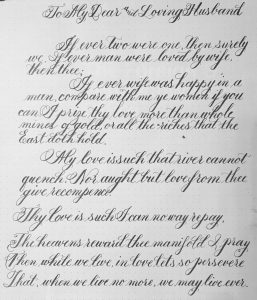 To My Dear and Loving Husband
If ever two were one, then surely
we. If ever man were loved by wife,
then thee;
If ever wife was happy in a
man, compare with me ye women if you
can. I prize thy love more than whole
mines of gold, or all the riches that the
East doth hold.
My love is such that river cannot
quench. Nor aught but love from thee
give recompence.
Thy love is such I can no way repay,
The heavens reward thee manifold I pray
Then while we live, in love lets so persevere
That, when we live no more, we may live ever.